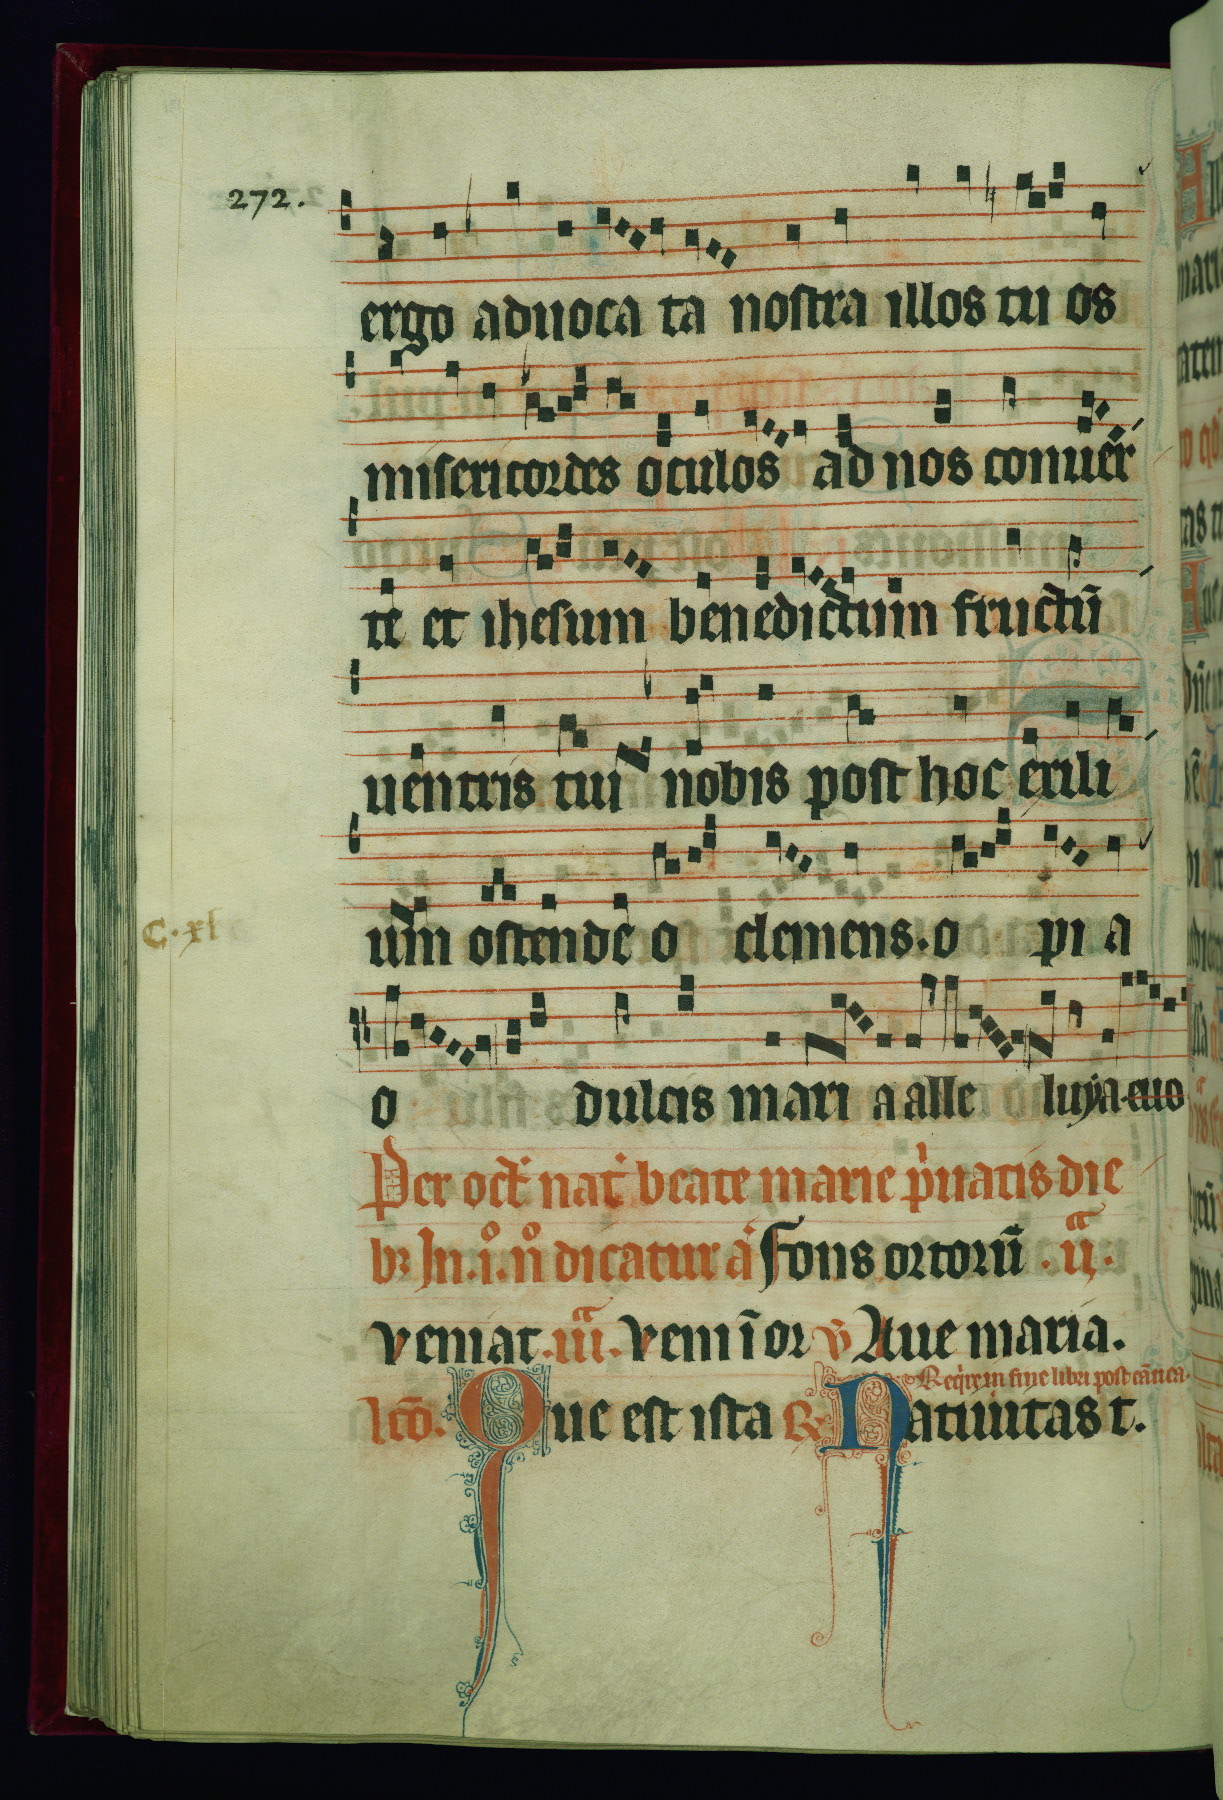 272.
ergo aduoca ta nostra illos tu os
misericordes oculos ad nos conuer
te et ihesum benedictum fructū
uentris tui nobis post hoc exili
um ostende o clemens. o pi a
C. xl
o dulcis mari a alle luya. euo
Per oct̄ nat̄ beate marie p̉uatis die
bꝫ In .i.° n̊ dicatur ā Fons ortorū .ii.a
veniat .iii.a Veni ī or v̄ Aue maria.
Req̉re in fine libri post cāntica.
lc̄o. Que est ista ℞ Natiuitas t.